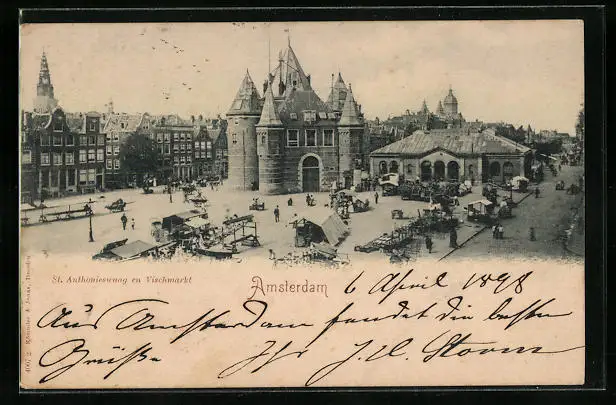 St. Anthonieswaag en Vischmarkt
Amsterdam
6 April 1898
Aus Amsterdam sendet die besten
Grüße Ihr J. H. Storm